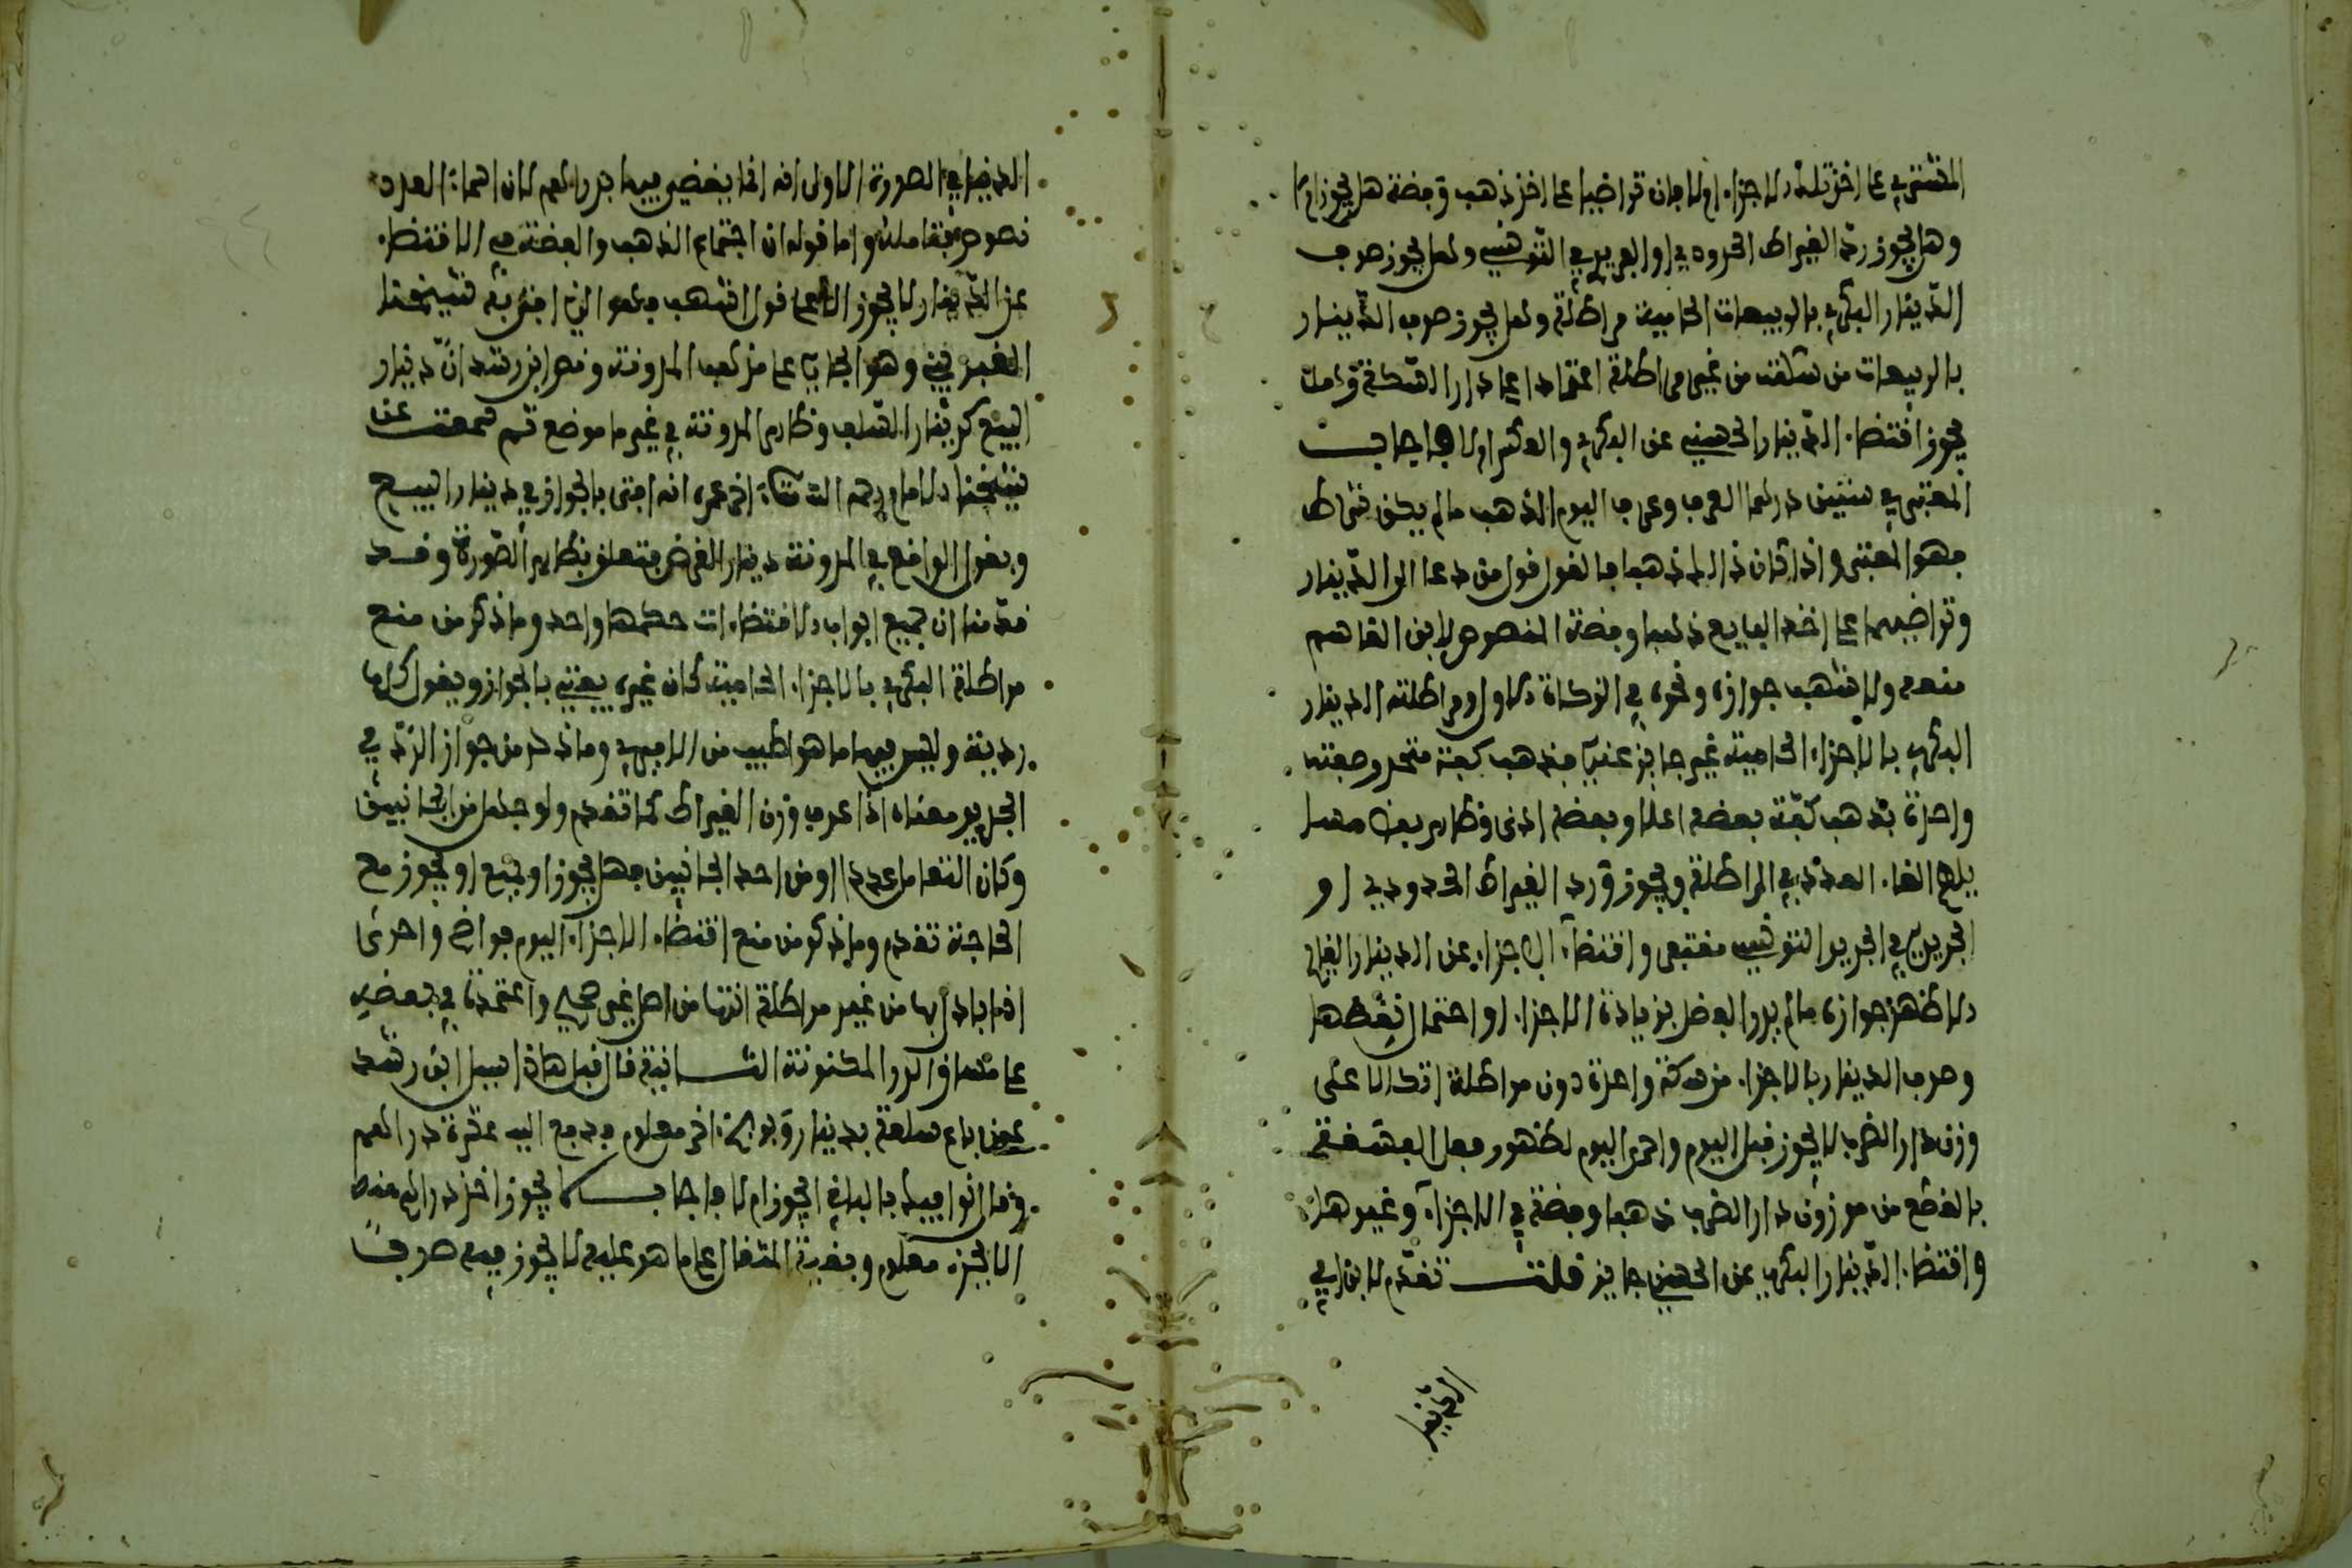 المشتري على اخذ تلك الاجزاء ام لا فان تراضيا على اخذ ذهب وفضة هل يجوز ام لا
وهل يجوز رد القيراط الحرود في او الجريري التونسي وهل يجوز صرف
الدينار البكري بالربيعات الخامية مراطلة وهل يجوز صرف الدينار
بالربيعات من سكته من غير مراطلة اعتمادا على دار السكة وهل
يجوز اقتضاء الدينار الحسيني عن البكري والعكس ام لا فاجاب
المعتبر في سنتين درهما العرف وعرف اليوم الذهب ما لم يكن شرط
فهو المعتبر واذا كان ذلك ذهبا فالقول قول من دعا الى الدينار
وتراضيهما على اخذ البايع ذهبا وفضة المنصوص لابن القاسم
منعه ولاشهب جوازه ونحوه في الزكاة الاول ومراطلة الدينار
البكري بالاجزاء الخامية غير جايز عندي فذهب كفة متحد وصفته
واحدة بذهب كفة بعضه اعلا وبعضه ادنى وظاهر بعض
يلمح الغاء العدد في المراطلة ويجوز ورد القيراط الحدود في او
الجريري في الجريد التونسي مغتفر واقتضاء الاجزاء عن الدينار الغالي
الاظهر جوازه ما لم يدر الفضل بزيادة الاجزاء او احتمال نقصها
وصرف الدينار بالاجزاء من سكة واحدة دون مراطلة اتكالا على
وزن دار الضرب لا يجوز قبل اليوم واحرى اليوم لظهور فعل الفسقة
بالقطع من موزون دار الضرب ذهبا وفضة في الاجزاء وغيرها
واقتضاء الدينار البكري عن الحسيني جايز قلت تقدم لابن ابي
الدينار
الدينار في الصورة الاولى انه انما يقضي فيها بدراهم لان اسماء العدد
نصوص فتامله واما قوله ان اجتماع الذهب والفضة في الاقتضاء
عن الدينار لا يجوز الا على قول اشهب وهو الذي افتى به شيخنا
الغبريني وهو الجاري على مذهب المدونة ونص ابن رشد ان دينار
البيع كدينار السلف وظاهر المدونة في غير ما موضع ثم سمعت عن
شيخنا الامام رحمه الله تعالى اخر عمره انه افتى بالجواز في دينار البيع
ويقول الواقع في المدونة دينار القرض متعلق بظاهر الصورة وقد
قدمنا ان جميع ابواب الاقتضاءات حكمها واحد وما ذكر من منع
مراطلة البكري بالاجزاء الخامية كان غيره يفتي بالجواز ويقول كلها
ردية وليس فيها ما هو اطيب من الاميري وما ذكر من جواز الرد في
الجريد معناه اذا عرف وزن القيراط كما تقدم ولو جهل من الجانبين
وكان التعامل عددا او من احد الجانبين فهل يجوز او يمنع او يجوز مع
الحاجة تقدم وما ذكر من منع اقتضاء الاجزاء اليوم فواضح واحرى
اذا بادل بها من غير مراطلة انها من اصل غير صحيح واعتمدنا في بعضه
على مسائل الدرر المكنونة الثانية قال قبل هاذا سيل ابن رشد
عمن باع سلعة بدينار وبوجه اخر معلوم فدفع اليه عشرة دراهم
وقال اتوا فيك بالباقي ايجوز ام لا فاجاب لا يجوز اخذ دراهم منه
الا بجزء معلوم وبقية المثقال على ما هو عليه لا يجوز فيه صرف